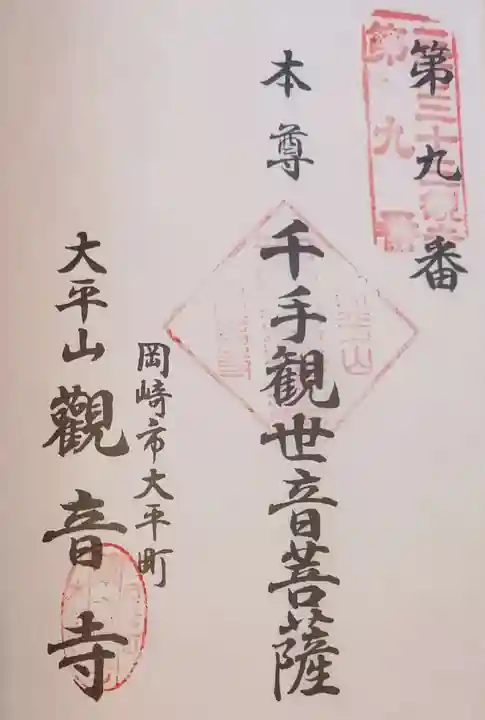 第九番
第九番
本尊 千手観世音菩薩
岡崎市大平町
大平山 觀音寺